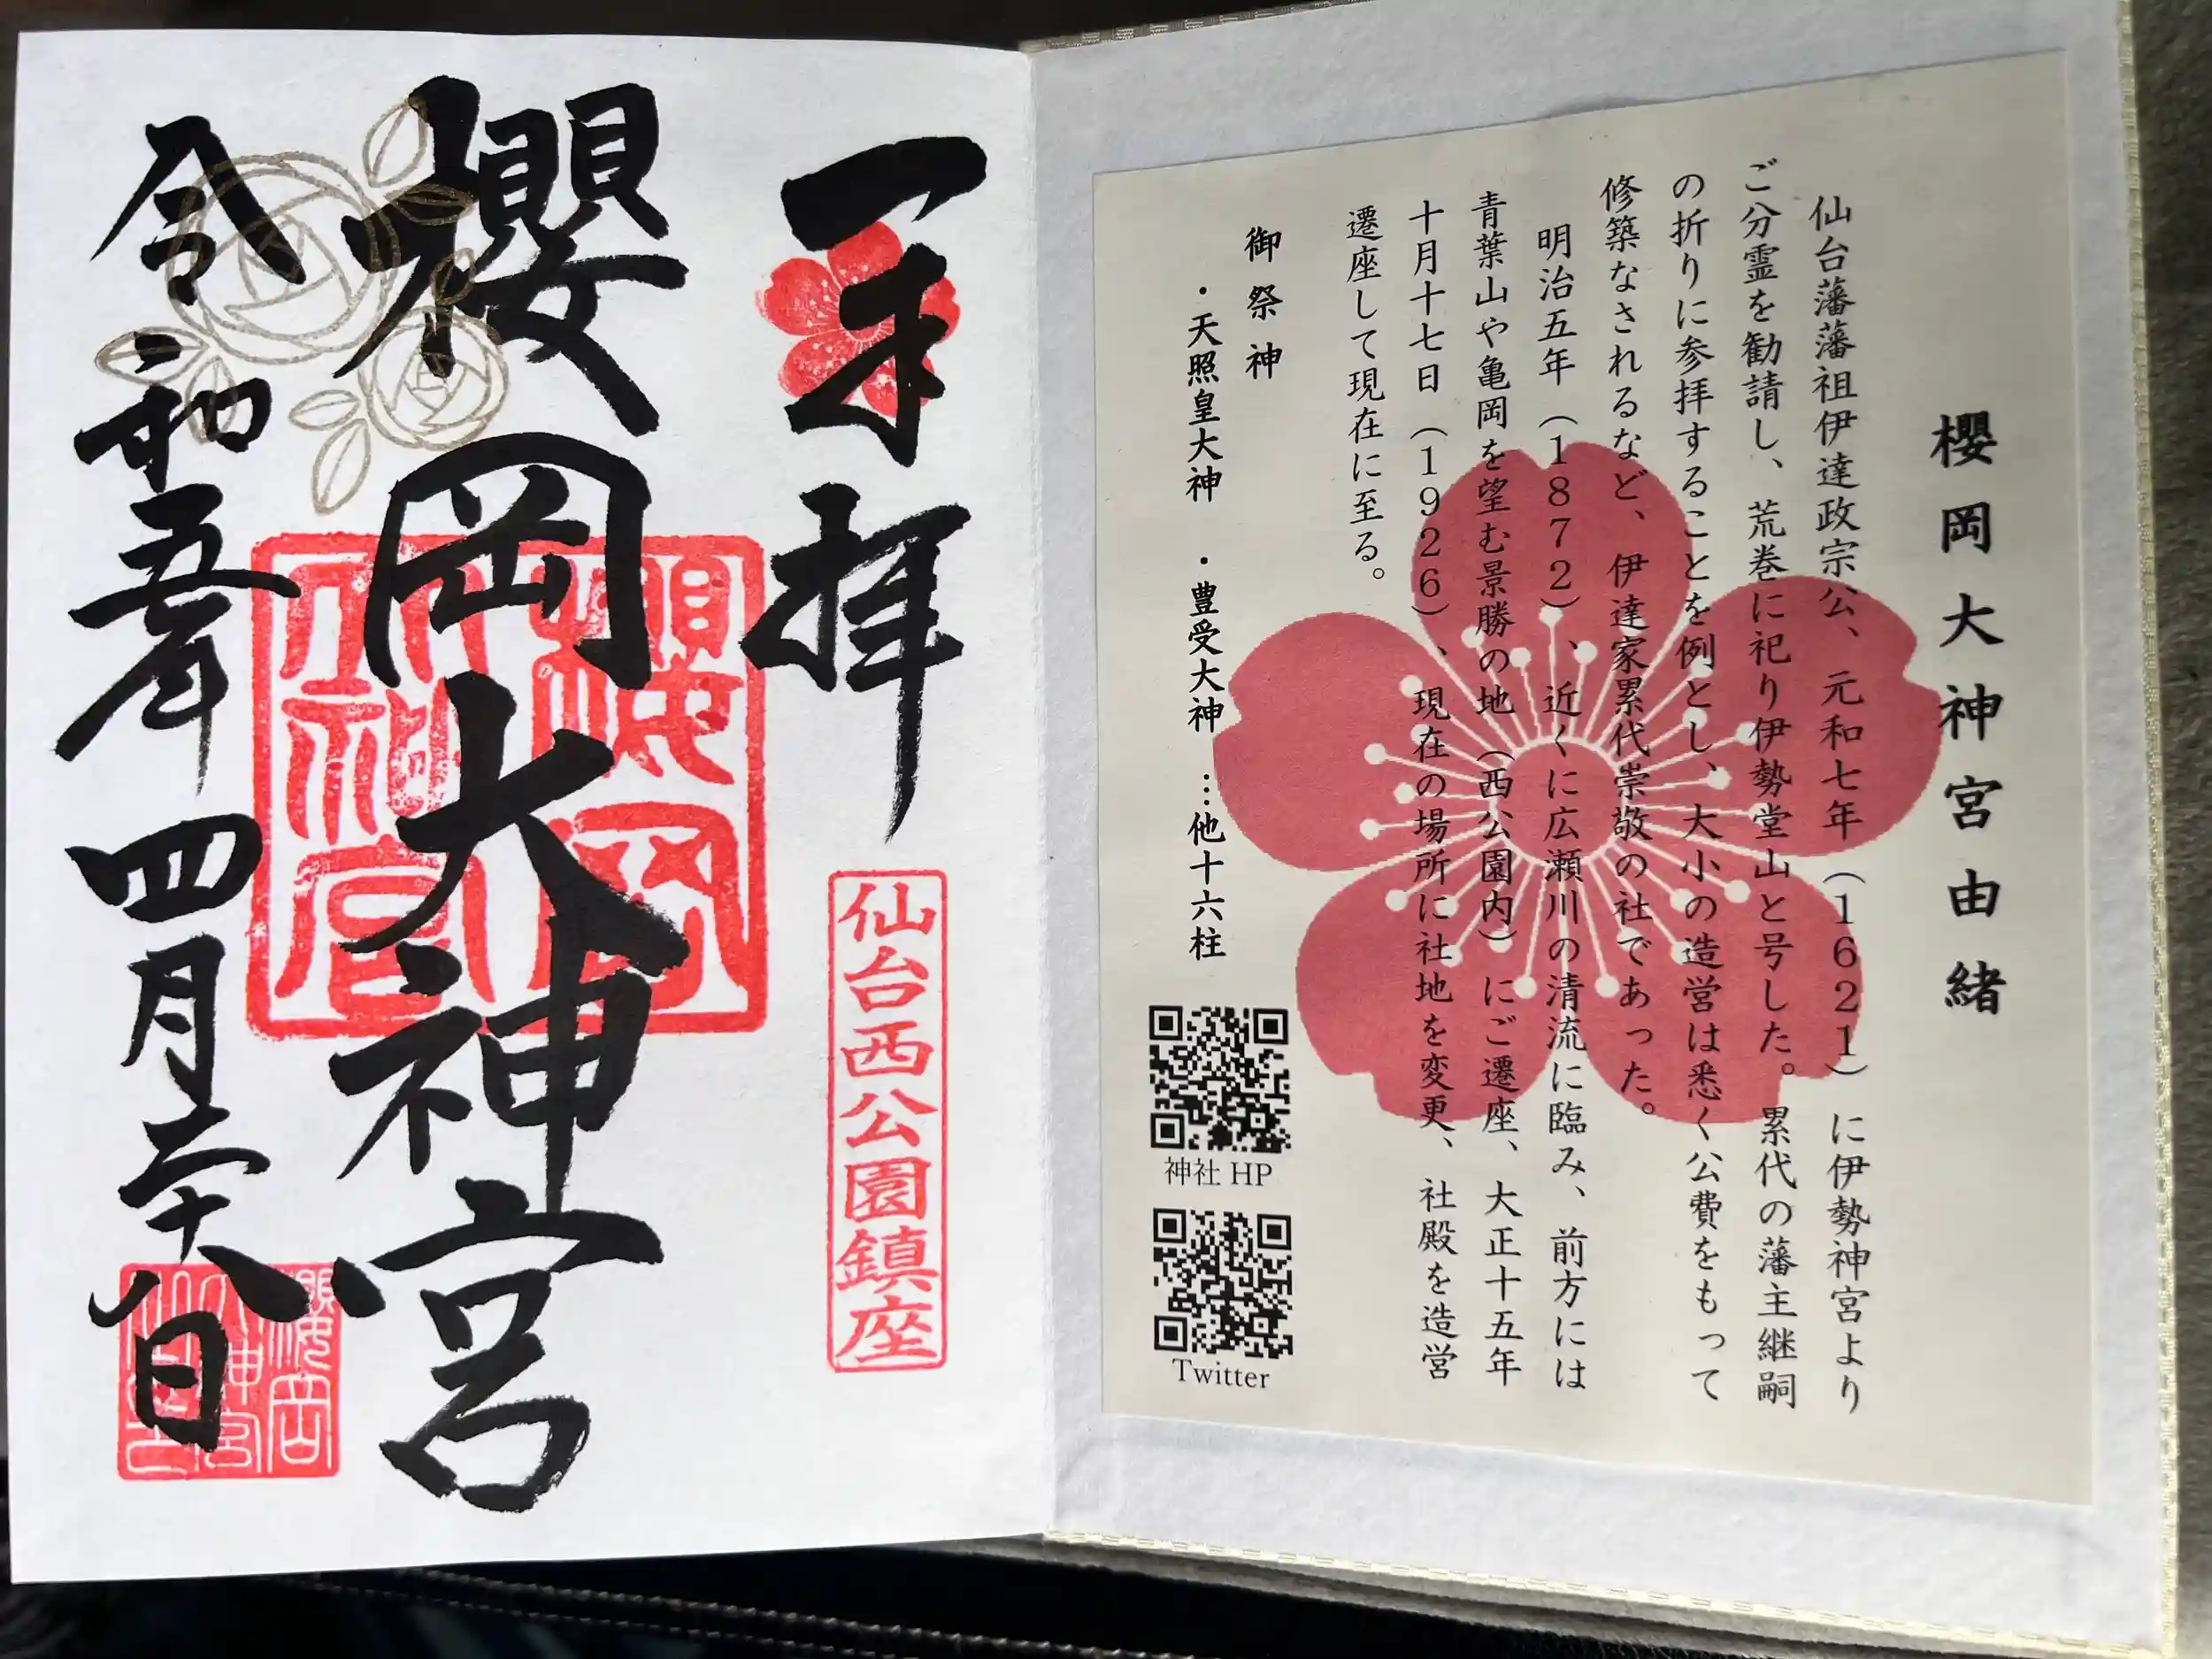 櫻岡大神宮由緒
仙台藩藩祖伊達政宗公、元和七年（1621）に伊勢神宮より
ご分霊を勧請し、荒巻に祀り伊勢堂山と号した。累代の藩主継嗣
の折りに参拝することを例とし、大小の造営は悉く公費をもって
修築なされるなど、伊達家累代崇敬の社であった。
明治五年（1872）、近くに広瀬川の清流に臨み、前方には
青葉山や亀岡を望む景勝の地（西公園内）にご遷座、大正十五年
十月十七日（1926）、現在の場所に社地を変更、社殿を造営
遷座して現在に至る。
御祭神
・天照皇大神 ・豊受大神 …他十六柱
神社 HP
Twitter
奉拝
仙台西公園鎮座
櫻岡大神宮
櫻岡大神宮
令和五年四月二十八日